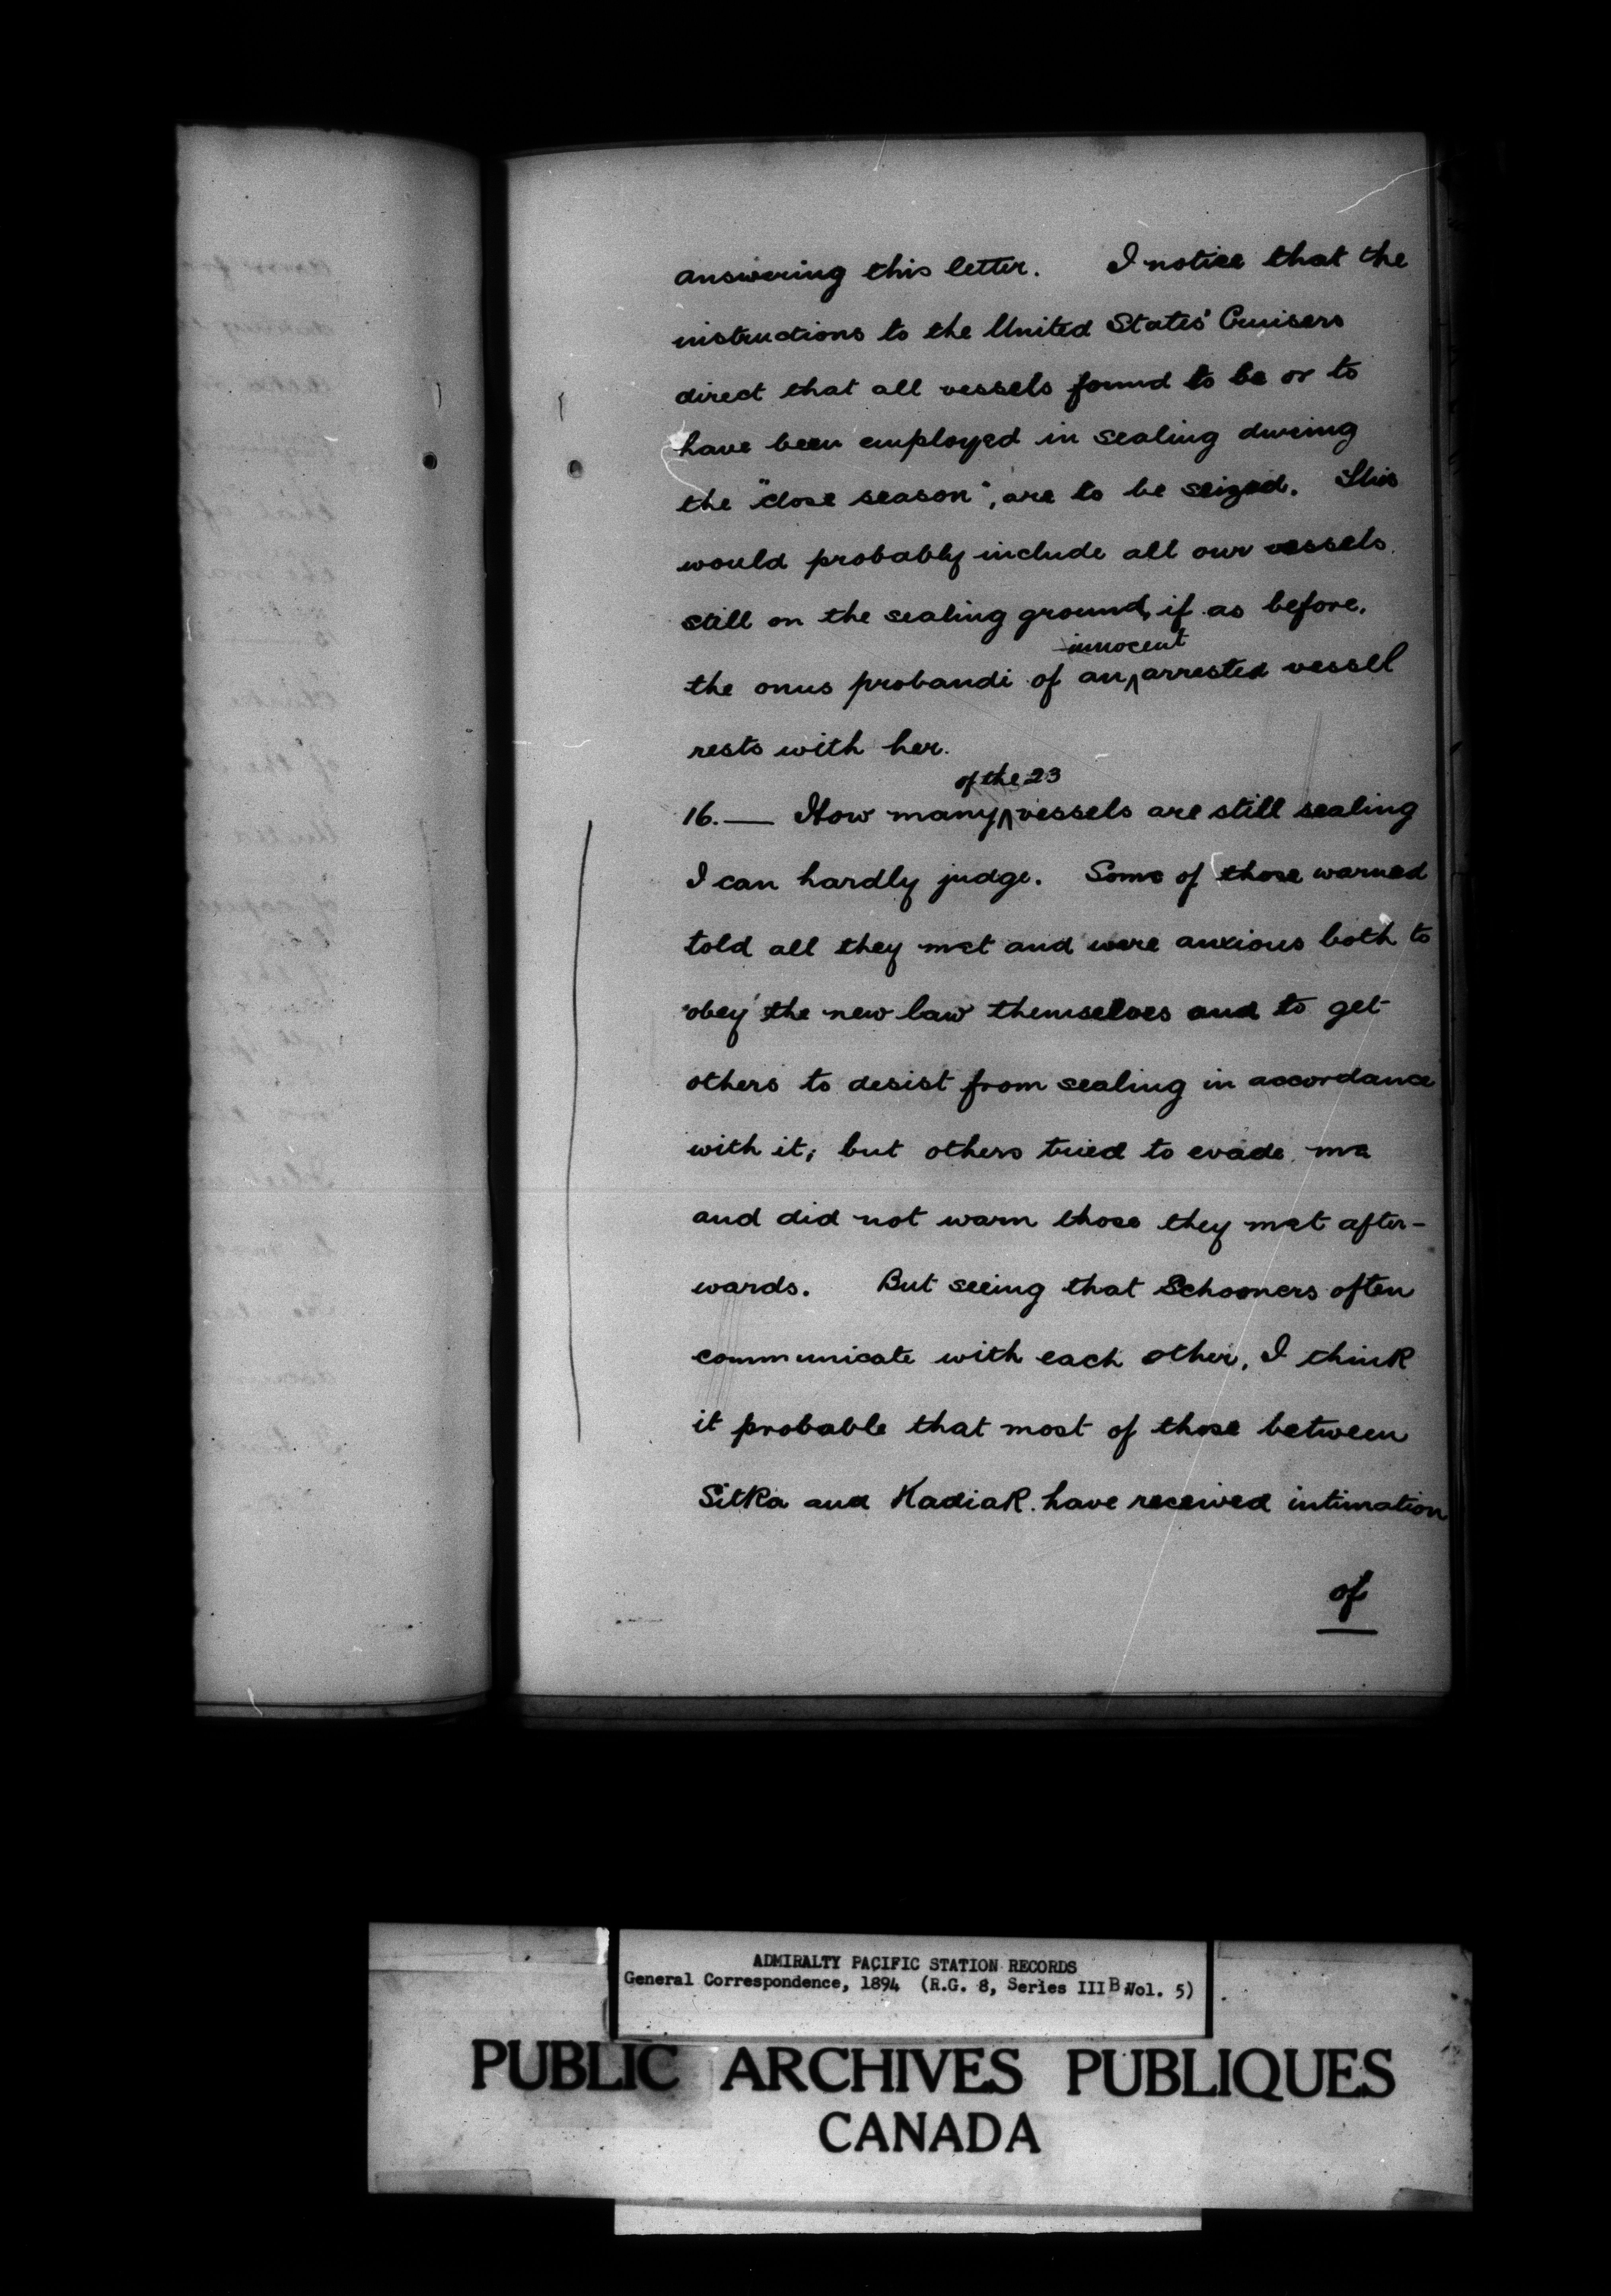 answering this letter. I notice that the
instructions to the United States' Cruisers
direct that all vessels found to be or to
have been employed in sealing during
the "close season", are to be seized. This
would probably include all our vessels
still on the sealing ground, if as before,
the onus probandi of an innocent arrested vessel
rests with her.
16.— How many of the 23 vessels are still sealing
I can hardly judge. Some of those warned
told all they met and were anxious both to
'obey' the new law themselves and to get
others to desist from sealing in accordance
with it; but others tried to evade me
and did not warn those they met after-
wards. But seeing that Schooners often
communicate with each other, I think
it probable that most of those between
Sitka and Kadiak have received intimation
of
ADMIRALTY PACIFIC STATION RECORDS
General Correspondence, 1894 (R.G. 8, Series III B Vol. 5)
PUBLIC ARCHIVES PUBLIQUES
CANADA